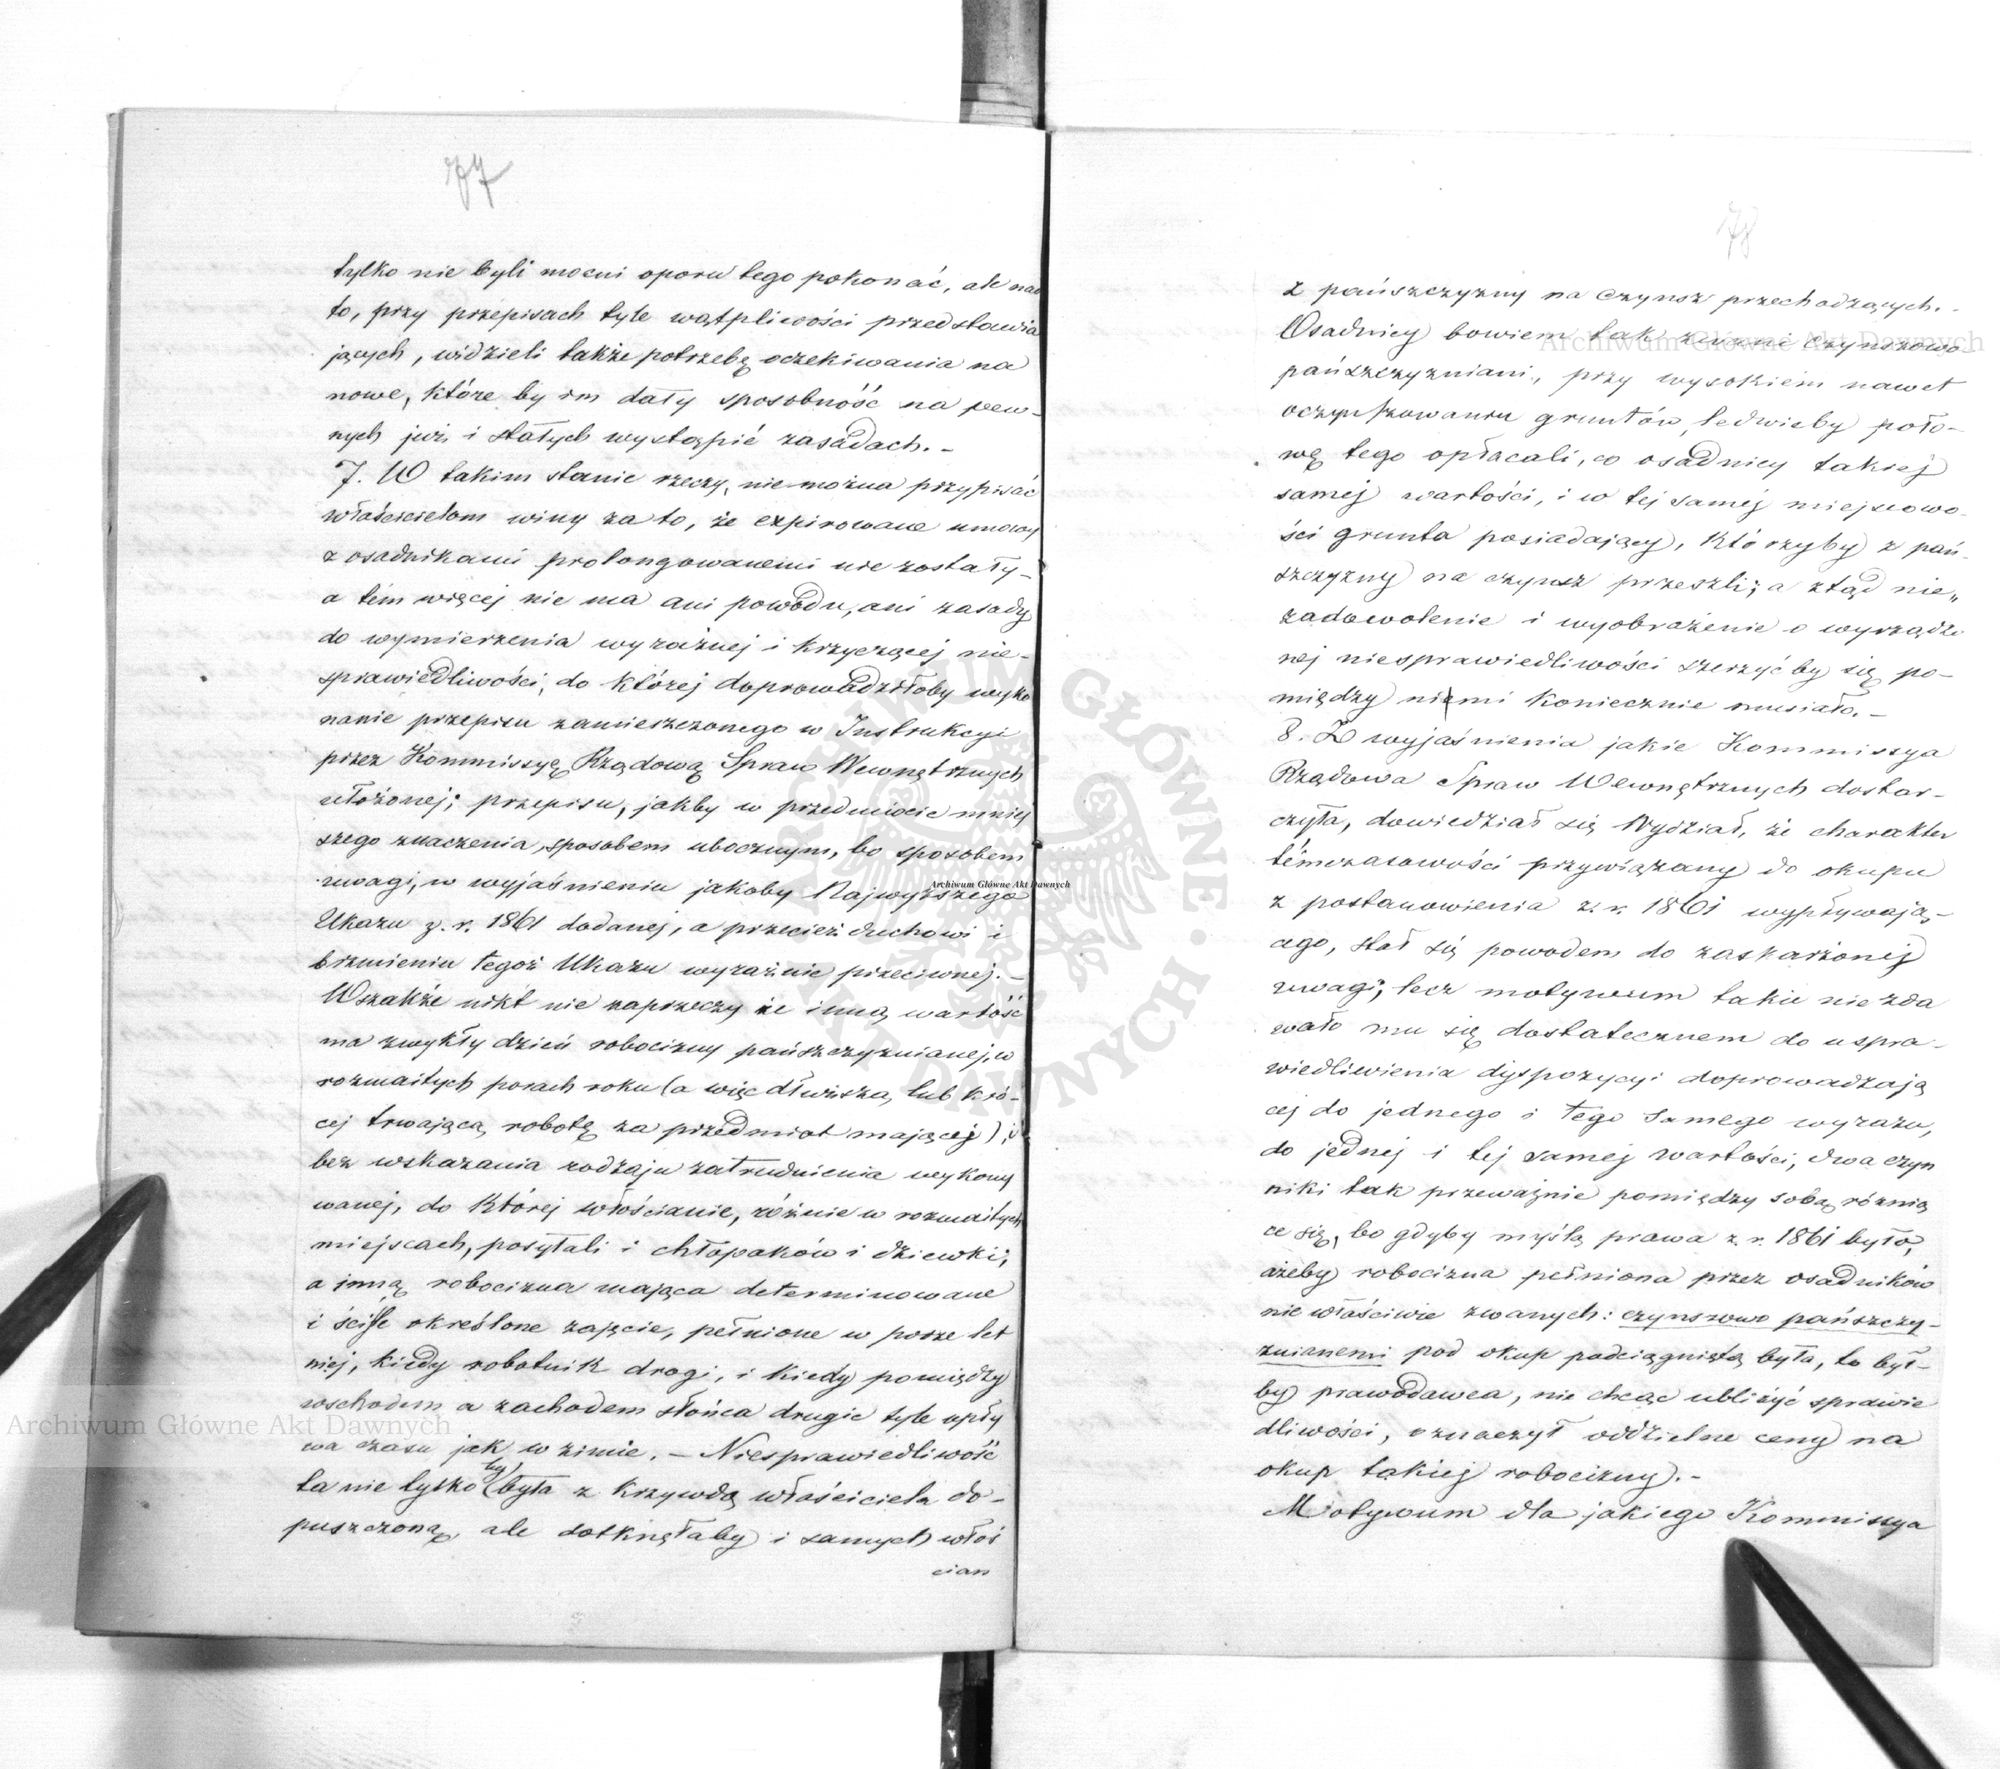 77
tylko nie byli mocni oporu tego pokonać, ale nad
to, przy przepisach tyle wątpliwości przedstawia
jących, widzieli także potrzebę oczekiwania na
nowe, które by im dały sposobność na pew-
nych już i stałych wystąpić zasadach.-
7. W takim stanie rzeczy, nie można przypisać
właścicielom winy za to, że expirowane umowy
z osadnikami prolongowanemi nie zostały-
a tém więcej nie ma ani powodu, ani zasady
do wymierzenia wyraźnej i krzyczącej nie-
sprawiedliwości, do której doprowadziłoby wyko
nanie przepisu zamieszczonego w Instrukcyi
przez Kommissyę Rządową Spraw Wewnętrznych
ułożonej; przepisu, jakby w przedmiocie mniej
szego znaczenia, sposobem ubocznym, bo sposobem
uwagi, w wyjaśnieniu jakoby Najwyższego
Ukazu z. r. 1861 dodanej, a przecież duchowi i
brzmieniu tegoż Ukazu wyraźnie przeciwnej.-
Wszakże nikt nie zaprzeczy że inną wartość
ma zwykły dzień robocizny pańszczyznianej, w
rozmaitych porach roku (a więc dłuższą, lub kró-
cej trwającą, robotę za przedmiot mającej) i
bez wskazania rodzaju zatrudnienia wykony
wanej, do której włościanie, różnie w rozmaitych
miejscach, posyłali i chłopaków i dziewki;
a inną robocizna mająca determinowane
i ściśle określone zajęcie, pełnione w porze let
niej, kiedy robotnik drogi, i kiedy pomiędzy
wschodem a zachodem słońca drugie tyle upły
wa czasu jak w zimie. - Niesprawiedliwość
ta nie tylko by była z krzywdą właściciela do-
puszczoną, ale dotknęłaby i samych włoś
cian
78
z pańszczyzny na czynsz przechodzących.-
Osadnicy bowiem tak zwani czynszowo-
pańszczyzniani, przy wysokiém nawet
oczynszowaniu gruntów, ledwieby poło-
wę tego opłacali, co osadnicy takiej
samej wartości, i w tej samej miejscowo-
ści grunta posiadający, którzyby z pań-
szczyzny na czynsz przeszli; a ztąd nie„
zadowolenie i wyobrażenie o wyrządzo
nej niesprawiedliwości szerzyć by się po-
między niemi koniecznie musiało.-
8. Z wyjaśnienia jakie Kommissya
Rządowa Spraw Wewnętrznych dostar-
czyła, dowiedział się Wydział, że charakter
témczasowości przywiązany do okupu
z postanowienia z. r. 1861 wypływają-
cego, stał się powodem do zaskarżonej
uwagi; lecz motywum takie nie zda
wało mu się dostatecznem do uspra-
wiedliwienia dyspozycyi doprowadzają
cej do jednego i tego samego wyrazu,
do jednej i tej samej wartości, dwa czyn
niki tak przeważnie pomiędzy sobą różnią
ce się, bo gdyby myślą prawa z. r. 1861 było,
ażeby robocizna pełniona przez osadników
nie właściwie zwanych: czynszowo pańszczy-
znianemi pod okup podciągniętą była, to był-
by prawodawca, nie chcąc ubliżyć sprawie
dliwości, oznaczył oddzielne ceny na
okup takiej robocizny.-
Motywum dla jakiego Kommissya
Archiwum Główne Akt Dawnych
Archiwum Główne Akt Dawnych
Archiwum Główne Akt Dawnych
ARCHIWUM GŁÓWNE • AKT DAWNYCH •